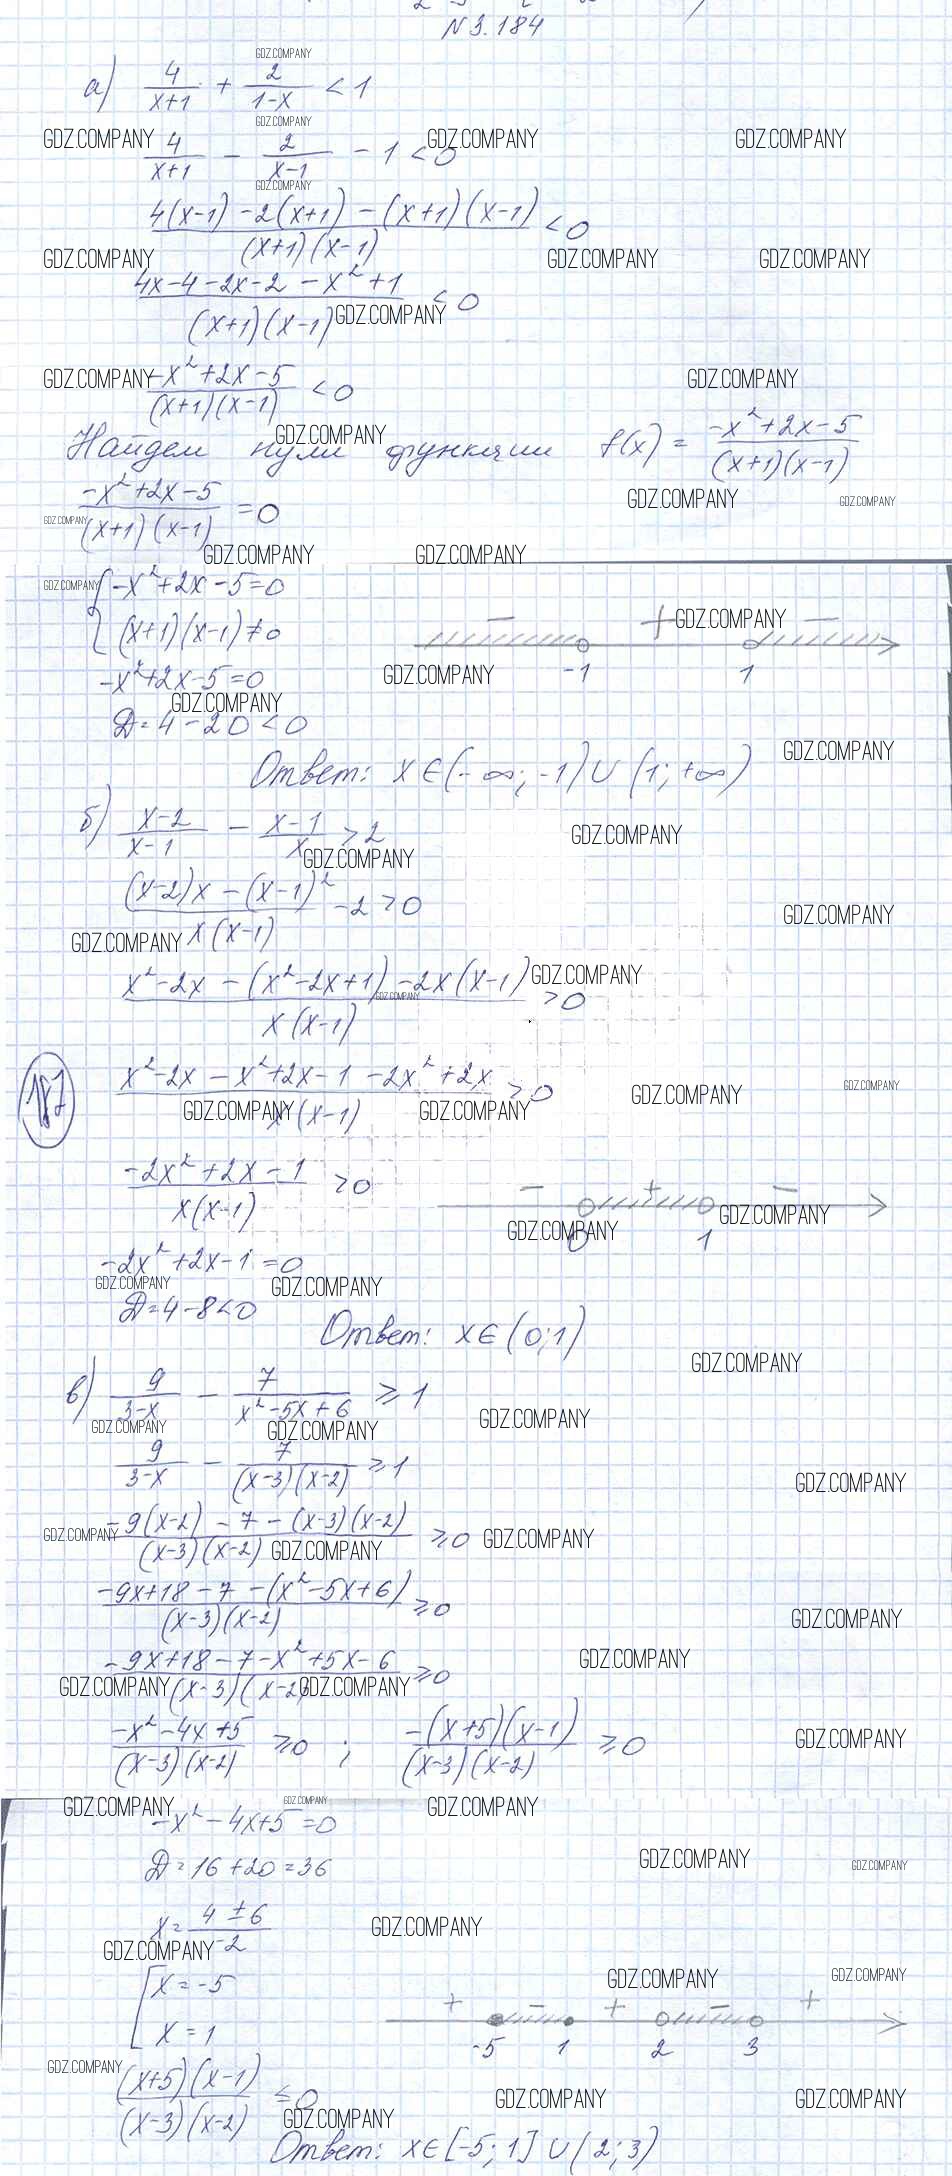 N 3.184
а) 4/(x+1) + 2/(1-x) < 1
4/(x+1) - 2/(x-1) - 1 < 0
(4(x-1) - 2(x+1) - (x+1)(x-1))/((x+1)(x-1)) < 0
(4x-4-2x-2-x²+1)/((x+1)(x-1)) < 0
(-x²+2x-5)/((x+1)(x-1)) < 0
Найдем нули функции f(x) = (-x²+2x-5)/((x+1)(x-1))
(-x²+2x-5)/((x+1)(x-1)) = 0
{ -x²+2x-5=0
(x+1)(x-1)≠0
- + -
-1 1
-x²+2x-5=0
Д=4-20<0
Ответ: x∈(-∞;-1)∪(1;+∞)
б) (x-2)/(x-1) - (x-1)/x > 2
((x-2)x-(x-1)²)/(x(x-1)) - 2 > 0
(x²-2x-(x²-2x+1)-2x(x-1))/(x(x-1)) > 0
187
(x²-2x-x²+2x-1-2x²+2x)/(x(x-1)) > 0
(-2x²+2x-1)/(x(x-1)) > 0
- + -
0 1
-2x²+2x-1=0
Д=4-8<0
Ответ: x∈(0;1)
в) 9/(3-x) - 7/(x²-5x+6) ≥ 1
9/(3-x) - 7/((x-3)(x-2)) ≥ 1
(-9(x-2)-7-(x-3)(x-2))/((x-3)(x-2)) ≥ 0
(-9x+18-7-(x²-5x+6))/((x-3)(x-2)) ≥ 0
(-9x+18-7-x²+5x-6)/((x-3)(x-2)) ≥ 0
(-x²-4x+5)/((x-3)(x-2)) ≥ 0 ; (-(x+5)(x-1))/((x-3)(x-2)) ≥ 0
-x²-4x+5=0
Д=16+20=36
x=(4±6)/(-2)
[ x=-5
x=1
+ - + - +
-5 1 2 3
((x+5)(x-1))/((x-3)(x-2)) ≤ 0
Ответ: x∈[-5;1]∪(2;3)
GDZ.COMPANY